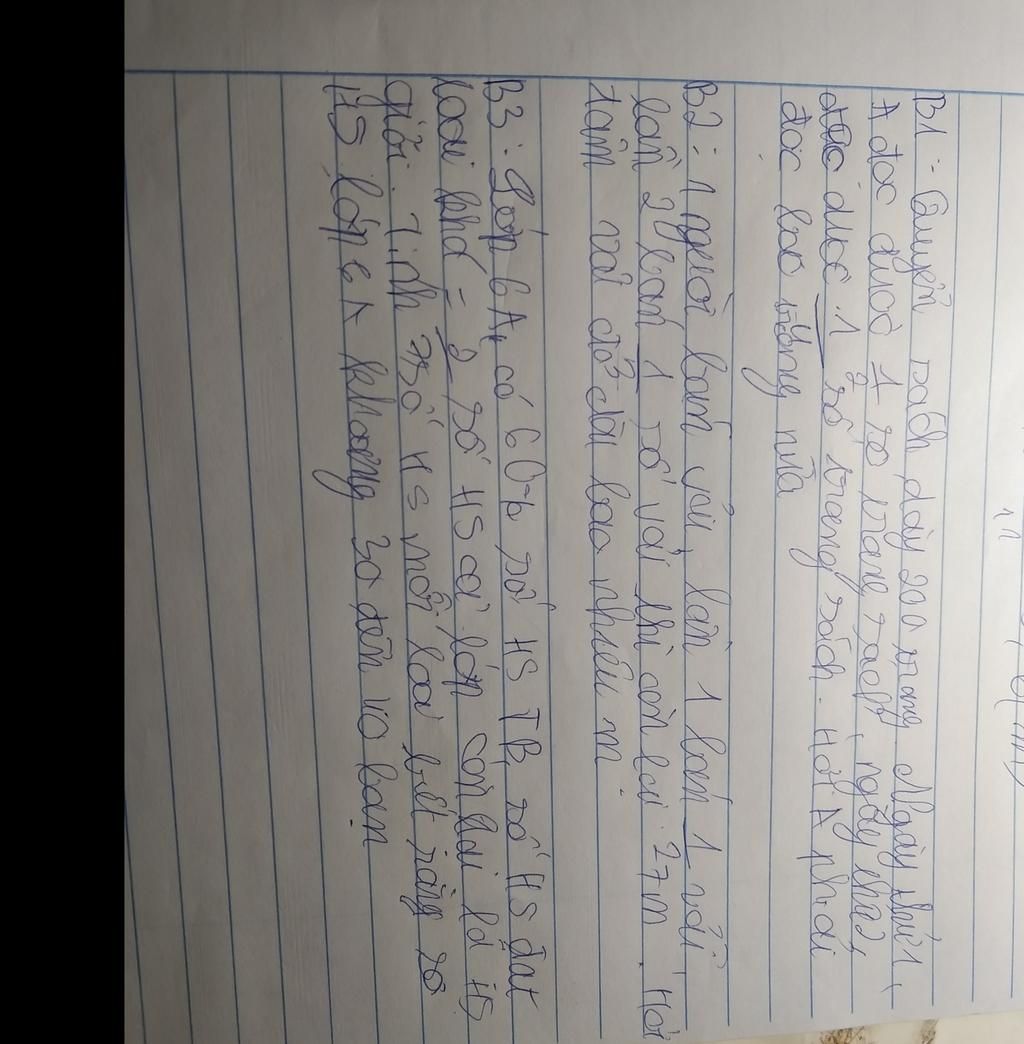 B1: Quyển sách dày 200 trang. Ngày thứ 1,
A đọc được 1 số trang sách, ngày thứ 2,
đọc được 1 số trang sách. Hỏi A phải
2
đọc bao trang nữa
B2: 1 người bán vải, lần 1 bán 1 vải
lần 2 bán 1 số vải thì còn lại 27m. Hỏi
3
tấm vải đó dài bao nhiêu m
B3: Lớp 6A, có 60% số HS TB, số HS đạt
loại khá = 2 số HS cả lớp còn lại là HS
giỏi. Tính số HS mỗi loại biết rằng số
HS lớp 6A khoảng 30 đến 40 bạn